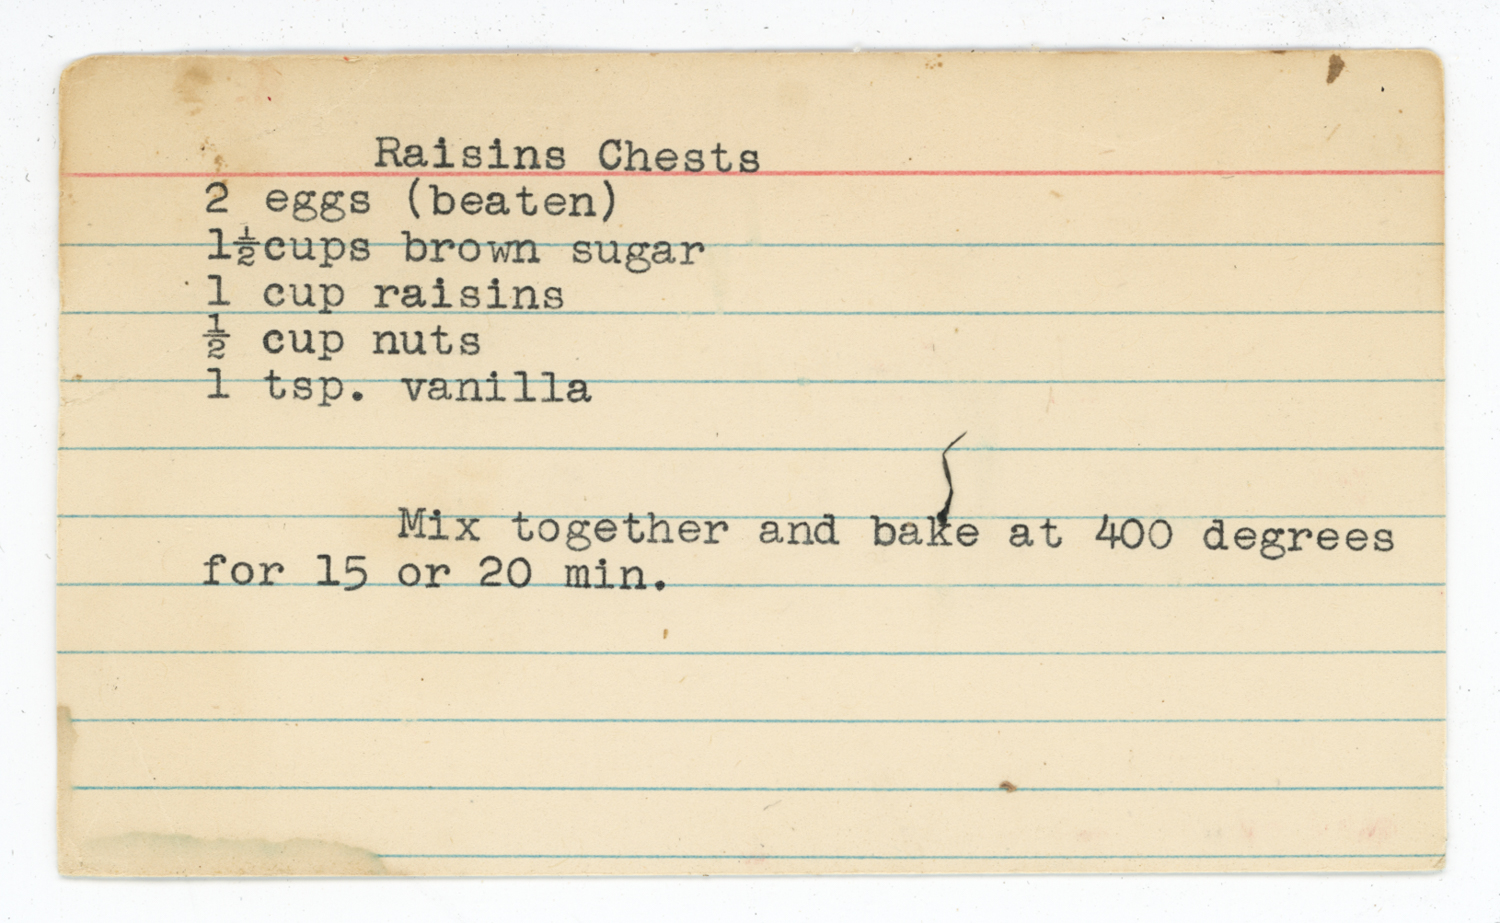 Raisins Chests
2 eggs (beaten)
1½cups brown sugar
1 cup raisins
½ cup nuts
1 tsp. vanilla
Mix together and bake at 400 degrees
for 15 or 20 min.